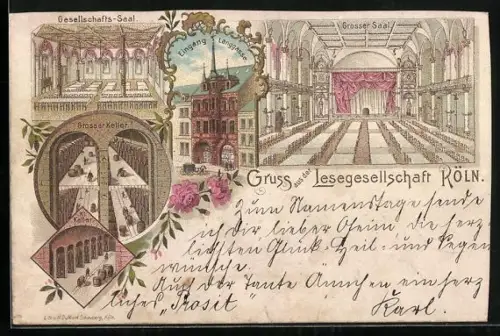 Gesellschafts-Saal.
Eingang Langgasse.
Grosser Saal.
Grosser Keller.
Keller.
Gruss aus der Lesegesellschaft KÖLN.
Zum Namenstage sende
ich Dir lieber Oheim die herz
lichsten Glück- Heil- und Segen
wünsche.
Auch der Tante Ännchen ein herz
liches „Prosit"
Karl.